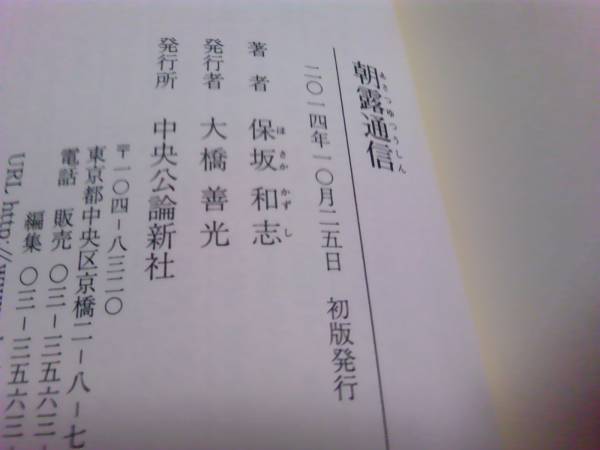 朝露通信
あさつゆつうしん
二〇一四年一〇月二五日 初版発行
著者 保坂和志
ほさか かずし
発行者 大橋善光
発行所 中央公論新社
〒一〇四-八三二〇
東京都中央区京橋二-八-七
電話 販売 〇三-三五六三-
編集 〇三-三五六三-
URL http://www.